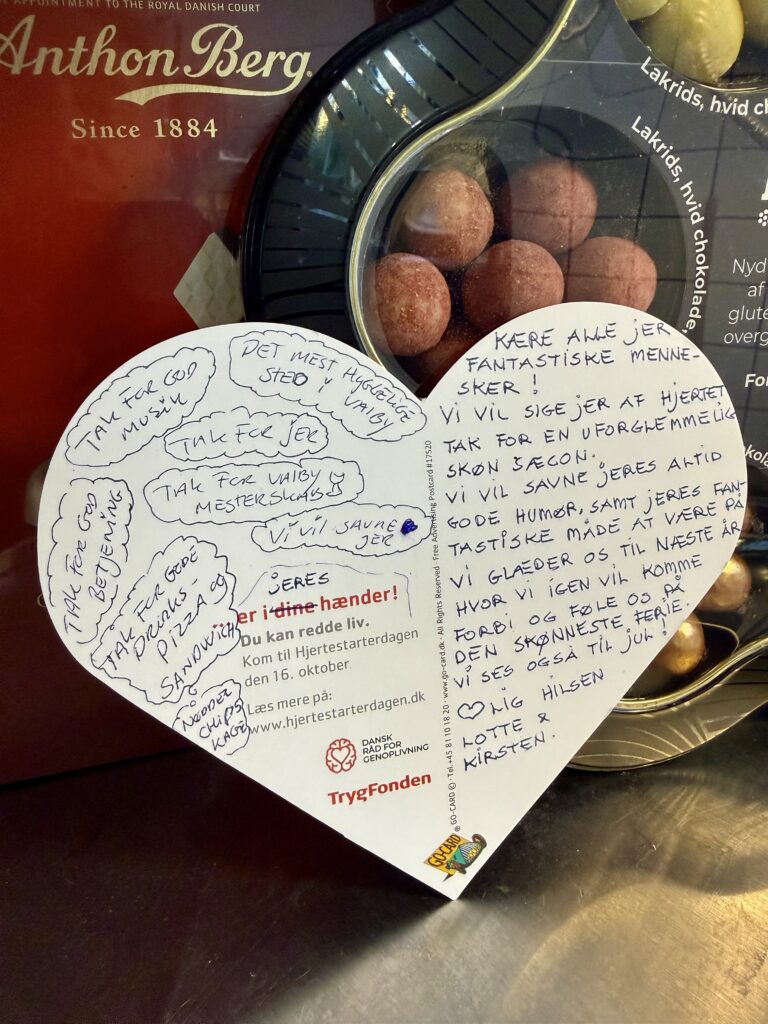 BY APPOINTMENT TO THE ROYAL DANISH COURT
Anthon Berg
Since 1884
Lakrids, hvid
Lakrids, hvid chokolade,
Nyd
af
glute
overg
TAK FOR GOD
MUSIK
DET MEST HYGGELIGE
STED I VALBY
TAK FOR JER
TAK FOR VALBY
MESTERSKAB
VI VIL SAVNE
JER
TAK FOR GOD
BETJENING
TAK FOR GODE
DRINKS-
PIZZA OG
SANDWICH
NØDDER
CHIPS
KAGE
JERES
er i dine hænder!
Du kan redde liv.
Kom til Hjertestarterdagen
den 16. oktober
Læs mere på:
www.hjertestarterdagen.dk
DANSK
RÅD FOR
GENOPLIVNING
TrygFonden
® GO-CARD © · Tel. +45 81 10 18 20 · www.go-card.dk · All Rights Reserved · Free Advertising Postcard #17520
GO-CARD
KÆRE ALLE JER
FANTASTISKE MENNE-
SKER!
VI VIL SIGE JER AF HJERTET
TAK FOR EN UFORGLEMMELIG
SKØN SÆCON.
VI VIL SAVNE JERES ALTID
GODE HUMØR, SAMT JERES FAN-
TASTISKE MÅDE AT VÆRE PÅ
VI GLÆDER OS TIL NÆSTE ÅR
HVOR VI IGEN VIL KOMME
FORBI OG FØLE OS PÅ
DEN SKØNNESTE FERIE.
VI SES OGSÅ TIL JUL!
♡LIG HILSEN
LOTTE &
KIRSTEN.